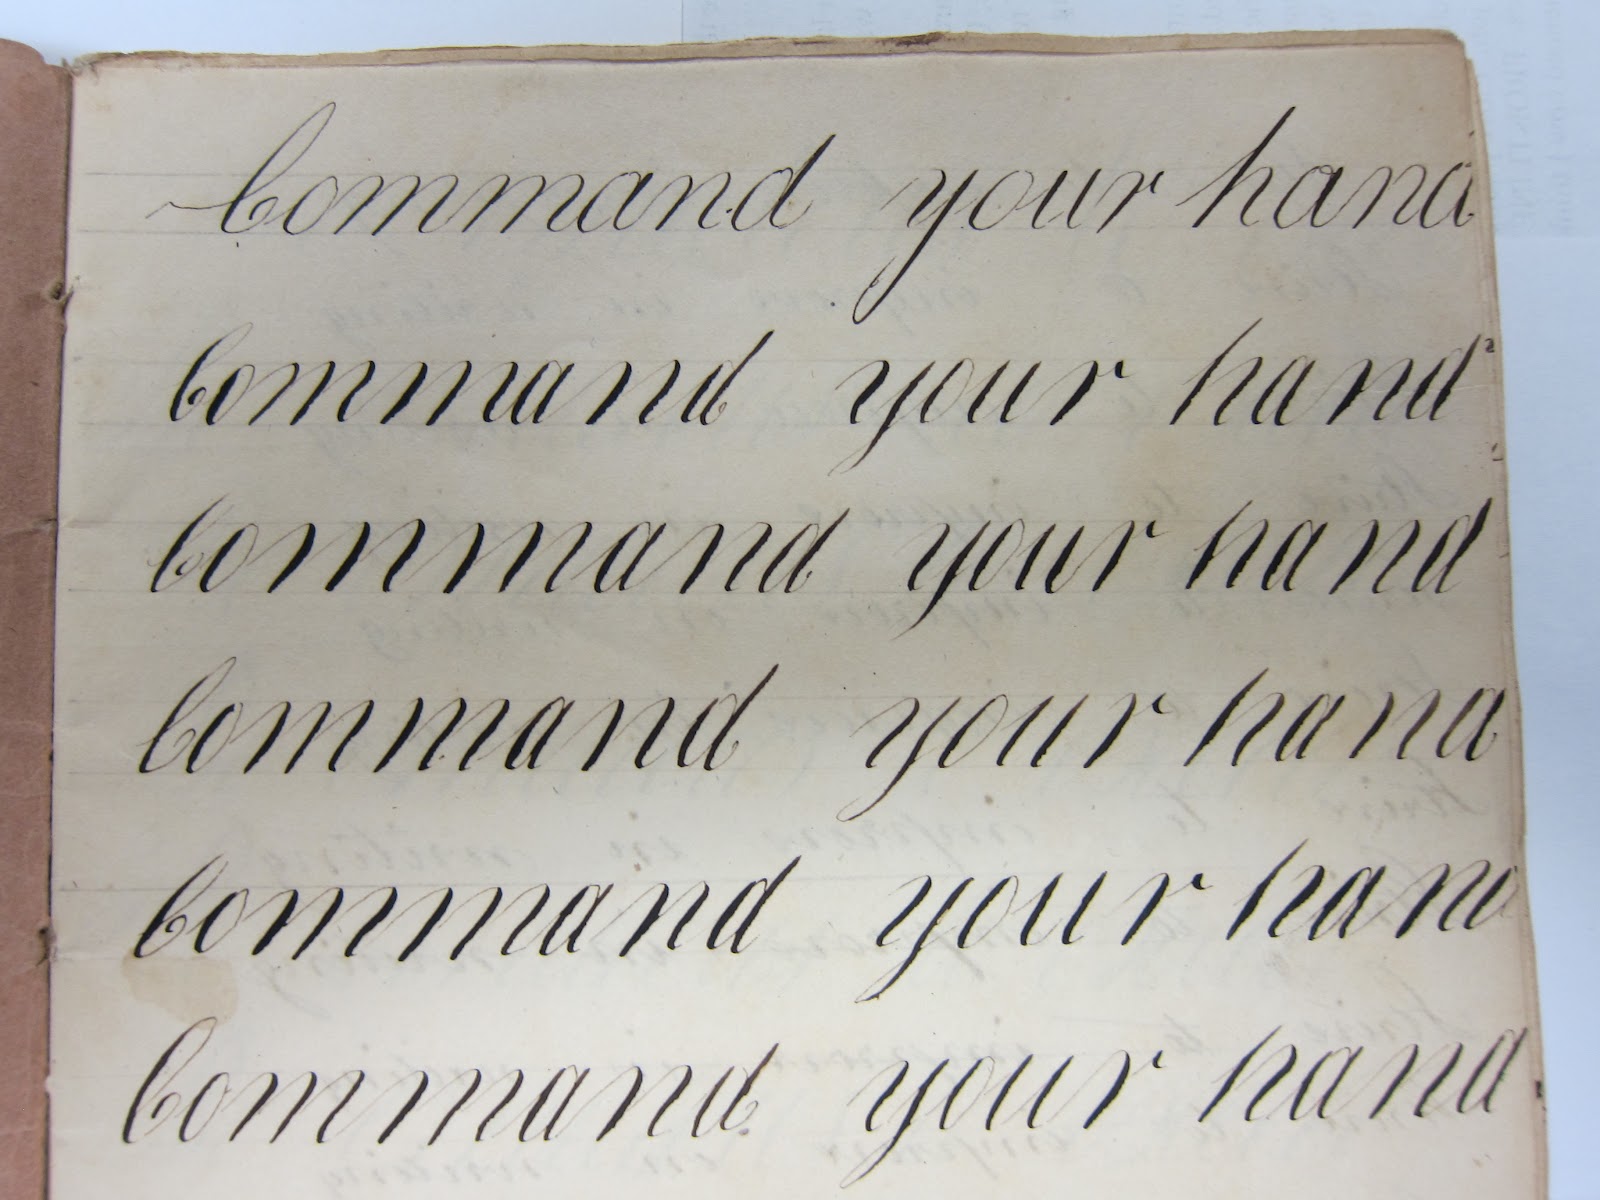 Command your hand
Command your hand
Command your hand
Command your hand
Command your hand
Command your hand